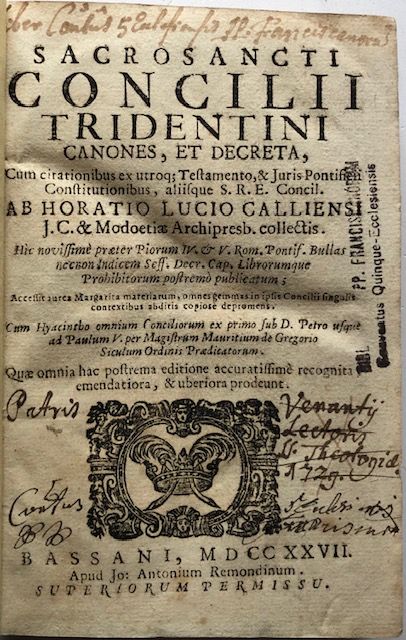 SACROSANCTI
CONCILII
TRIDENTINI
CANONES, ET DECRETA,
Cum citationibus ex utroq; Testamento, & Juris Pontificii
Constitutionibus, aliisque S. R. E. Concil.
AB HORATIO LUCIO CALLIENSI
J. C. & Modoetiæ Archipresb. collectis.
Hic novissimè præter Piorum IV. & V. Rom. Pontif. Bullas
necnon Indicem Seff. Decr. Cap. Librorumque
Prohibitorum postremò publicatum;
Accessit aurea Margarita materiarum, omnes gemmas in ipsis Concilii singulis
contextibus abditis copiosè depromens.
Cum Hyacintho omnium Conciliorum ex primo sub D. Petro usquè
ad Paulum V. per Magistrum Mauritium de Gregorio
Siculum Ordinis Prædicatorum.
Quæ omnia hac postrema editione accuratissimè recognita
emendatiora, & uberiora prodeunt.
BIBL. PP. FRANCISCANORUM
Conventus Quinque-Ecclesiensis
Patris
Venantij
Lectoris
Theologiæ
1729.
BASSANI, MDCCXXVII.
Apud Jo: Antonium Remondinum.
SUPERIORUM PERMISSU.